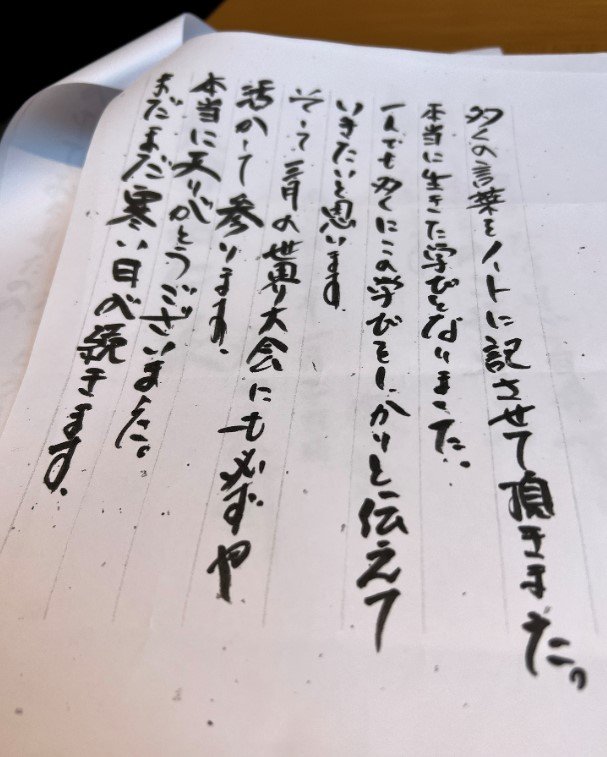 多くの言葉をノートに記させて頂きました。
本当に生きた学びとなりました。
一人でも多くにこの学びをしっかりと伝えて
いきたいと思います。
そして三月の世界大会にも必ずや
活かして参ります。
本当に有りがとうございました。
まだまだ寒い日が続きます。